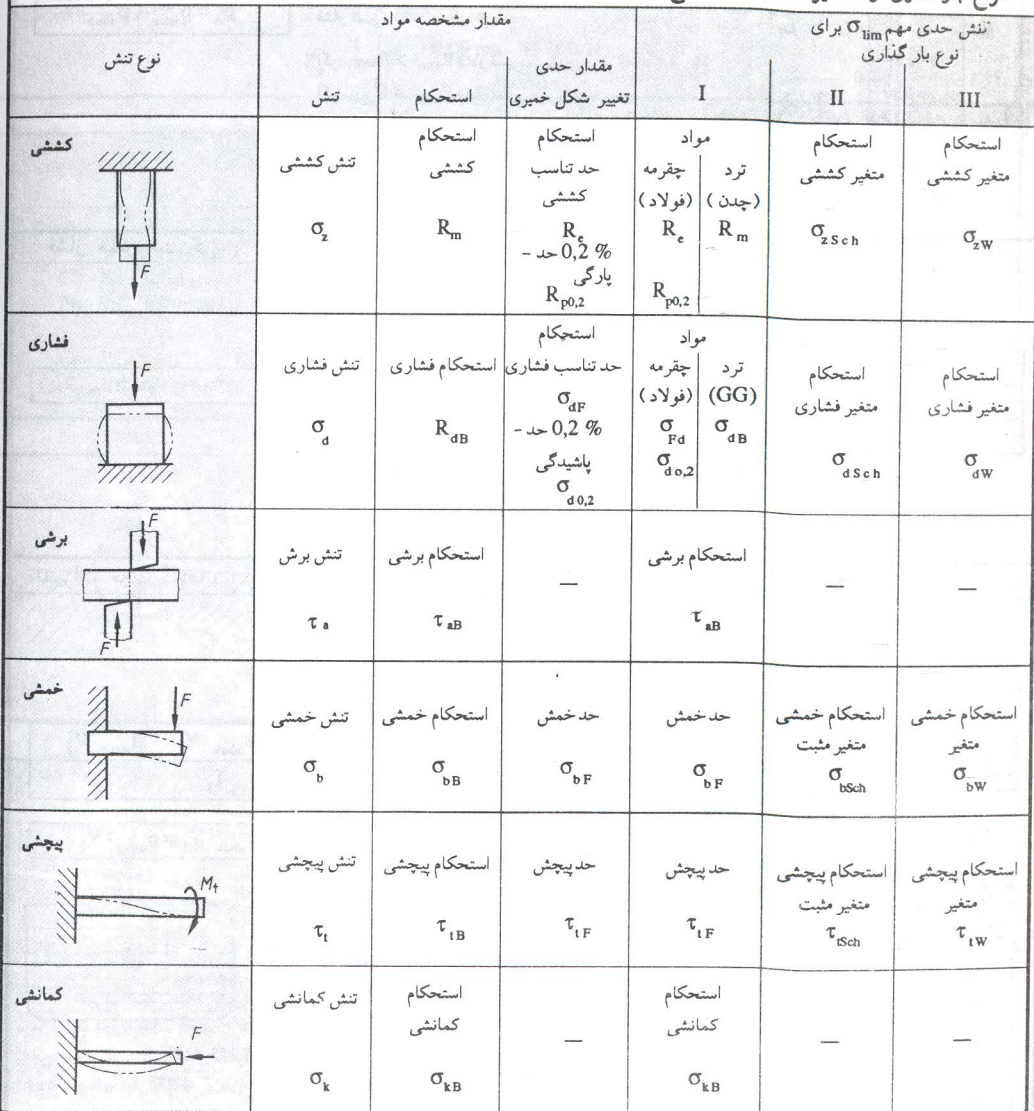 تنش حدی مهم σlim برای
نوع بار گذاری
مقدار مشخصه مواد
نوع تنش
تنش
استحکام
مقدار حدی
تغییر شکل خمیری
I
II
III
کششی
F
تنش کششی
σz
استحکام
کششی
Rm
استحکام
حد تناسب
کششی
Re
0,2 % حد -
پارگی
Rp0,2
مواد
چقرمه
(فولاد)
Re
Rp0,2
ترد
(چدن)
Rm
استحکام
متغیر کششی
σzSch
استحکام
متغیر کششی
σzW
فشاری
F
تنش فشاری
σd
استحکام فشاری
RdB
استحکام
حد تناسب فشاری
σdF
0,2 % حد -
پاشیدگی
σd0,2
مواد
چقرمه
(فولاد)
σFd
σdo,2
ترد
(GG)
σdB
استحکام
متغیر فشاری
σdSch
استحکام
متغیر فشاری
σdW
برشی
F
F
تنش برش
τa
استحکام برشی
τaB
—
استحکام برشی
τaB
—
—
خمشی
F
تنش خمشی
σb
استحکام خمشی
σbB
حد خمش
σbF
حد خمش
σbF
استحکام خمشی
متغیر مثبت
σbSch
استحکام خمشی
متغیر
σbW
پیچشی
Mt
تنش پیچشی
τt
استحکام پیچشی
τtB
حد پیچش
τtF
حد پیچش
τtF
استحکام پیچشی
متغیر مثبت
τtSch
استحکام پیچشی
متغیر
τtW
کمانشی
F
تنش کمانشی
σk
استحکام
کمانشی
σkB
—
استحکام
کمانشی
σkB
—
—